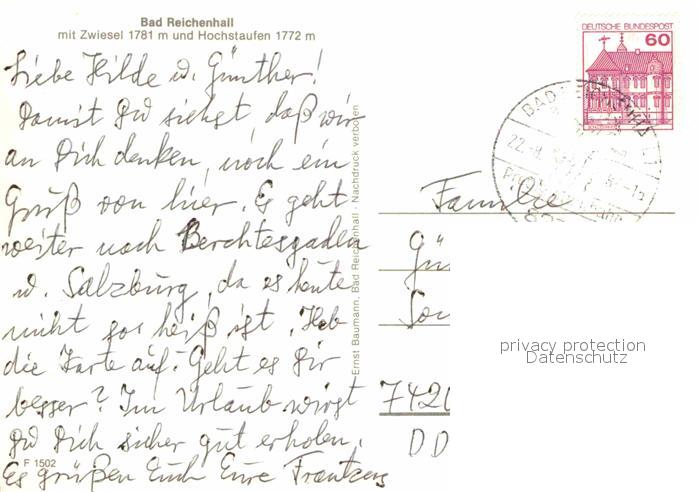 Bad Reichenhall
mit Zwiesel 1781 m und Hochstaufen 1772 m
DEUTSCHE BUNDESPOST
60
Liebe Hilde u. Günther!
Damit Du siehst, daß wir
an Dich denken, noch ein
Gruß von hier. Es geht
weiter nach Berchtesgaden
u. Salzburg, da es heute
nicht so heiß ist. Heb
die Karte auf. Geht es Dir
besser? Im Urlaub wirst
Du Dich sicher gut erholen.
Es grüßen Euch Eure
F 1502
Ernst Baumann, Bad Reichenhall - Nachdruck verboten
BAD REICHENHALL
Familie
Gü
Son
742
DD
privacy protection
Datenschutz